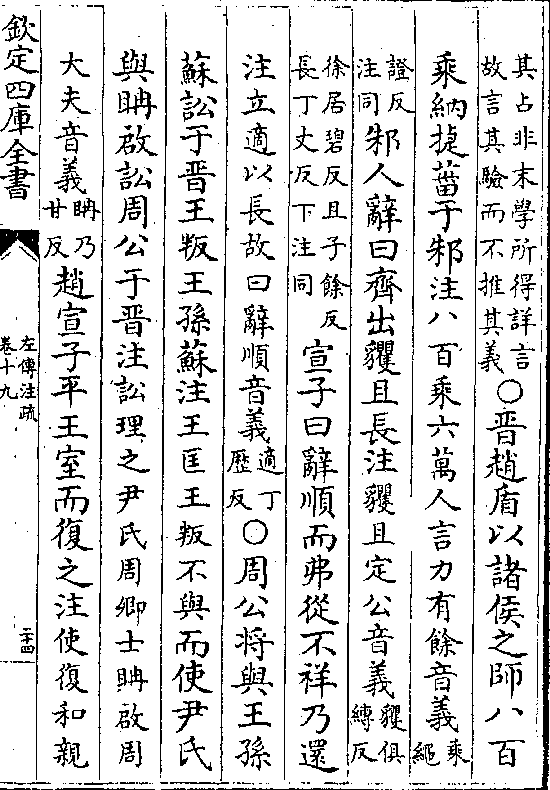 其占非末學所得詳言
故言其驗而不推其義
○晋趙盾以諸侯之師八百
乘納捷菑于邾注八百乘六萬人言力有餘音義
乘
繩
證反
注同
邾人辭曰齊出貜且長注貜且定公音義
貜俱
縛反
徐居碧反且子餘反
長丁丈反下注同
宣子曰辭順而弗從不祥乃還
注立適以長故曰辭順音義
適丁
歴反
○周公將與王孫
蘇訟于晋王叛王孫蘇注王匡王叛不與而使尹氏
與聃啟訟周公于晋注訟理之尹氏周卿士聃啟周
大夫音義
聃乃
甘反
趙宣子平王室而復之注使復和親
欽定四庫全書
左傳注疏
卷十九
二十四